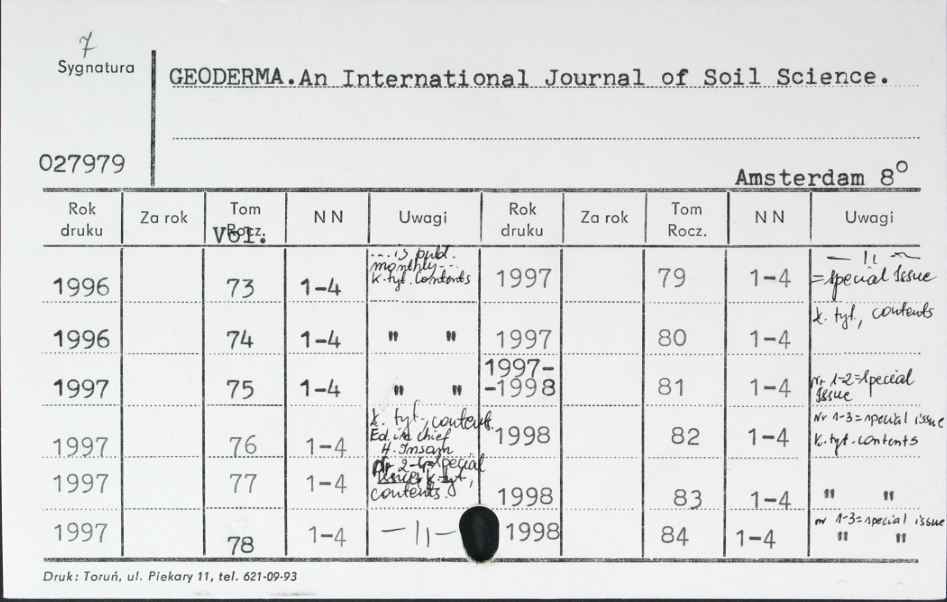 7
Sygnatura
GEODERMA.An International Journal of Soil Science.
027979
Amsterdam 8°
Rok druku Za rok Tom Rocz. Vol. N N Uwagi Rok druku Za rok Tom Rocz. N N Uwagi
1996 73 1-4 ...is publ. monthly... k. tyt. contents
1996 74 1-4 " "
1997 75 1-4 " "
1997 76 1-4 k. tyt., contents. Ed. in chief H. Insam
1997 77 1-4 nr 2-4=special issue, k. tyt, contents.
1997 78 1-4 -||-
1997 79 1-4 -||- =special Issue
1997 80 1-4 k. tyt., contents
1997--1998 81 1-4 nr 1-2=special Issue
1998 82 1-4 nr 1-3=special issue k. tyt. contents
1998 83 1-4 " "
1998 84 1-4 nr 1-3=special issue " "
Druk: Toruń, ul. Piekary 11, tel. 621-09-93